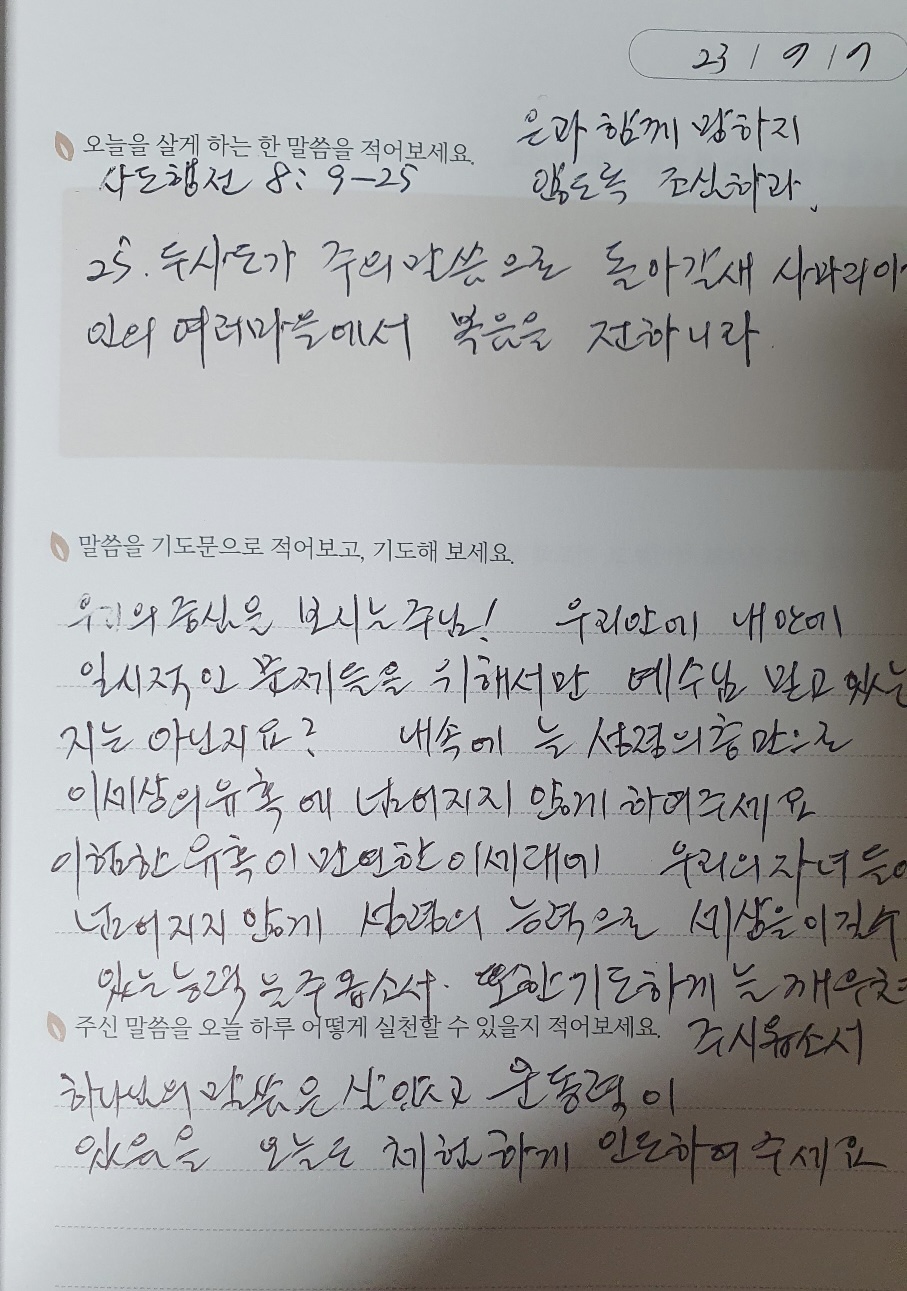 23 / 9 / 9
은과 함께 망하지
오늘을 살게 하는 한 말씀을 적어보세요.
사도행전 8: 9-25
않도록 조심하라.
25. 두사도가 주의 말씀으로 돌아갈새 사마리아
인의 여러마을에서 복음을 전하니라
말씀을 기도문으로 적어보고, 기도해 보세요.
우리의 중심을 보시는 주님! 우리안에 내안에
일시적인 문제들을 위해서만 예수님 믿고 있는
지는 아닌지요? 내속에 늘 성령의충만으로
이세상의 유혹에 넘어지지 않게 하여주세요
이험한 유혹이 만연한 이세대에 우리의 자녀들이
넘어지지 않게 성령의 능력으로 세상을이길수
있는 능력을 주옵소서. 또한 기도하게 늘 깨우쳐
주신 말씀을 오늘 하루 어떻게 실천할 수 있을지 적어보세요.
주시옵소서
하나님의 말씀은 살았고 운동력이
있음을 오늘도 체험하게 인도하여 주세요